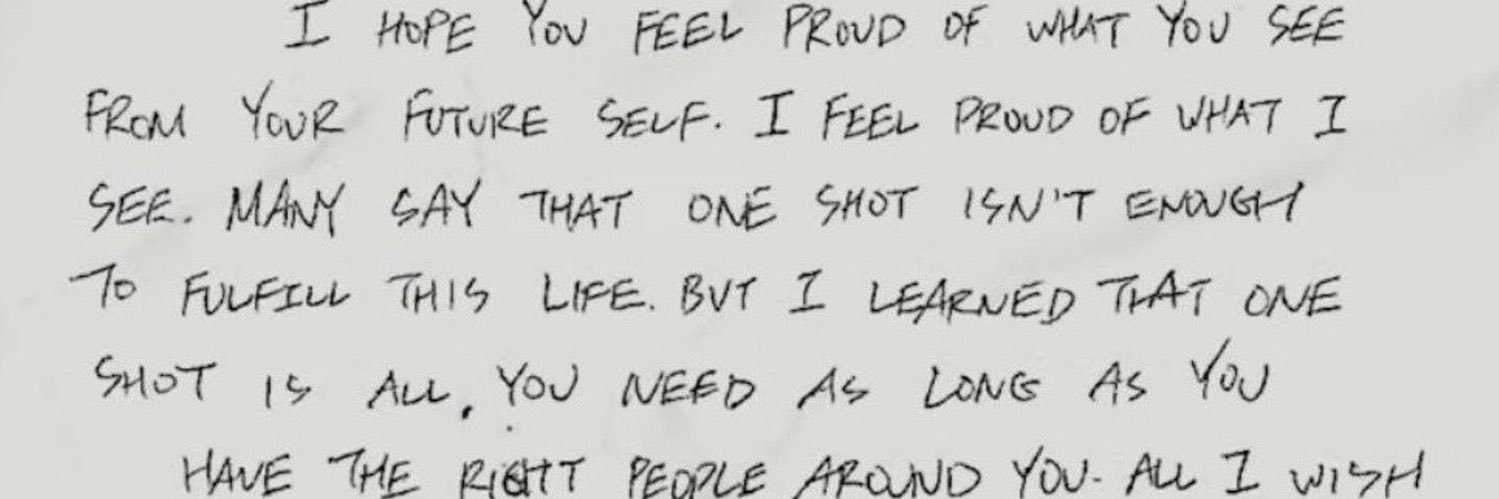 I HOPE YOU FEEL PROUD OF WHAT YOU SEE
FROM YOUR FUTURE SELF. I FEEL PROUD OF WHAT I
SEE. MANY SAY THAT ONE SHOT ISN'T ENOUGH
TO FULFILL THIS LIFE. BUT I LEARNED THAT ONE
SHOT IS ALL. YOU NEED AS LONG AS YOU
HAVE THE RIGHT PEOPLE AROUND YOU. ALL I WISH